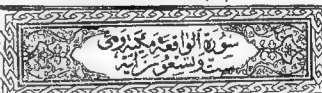 سورة الواقعة مكية وهي
ست وتسعون آية